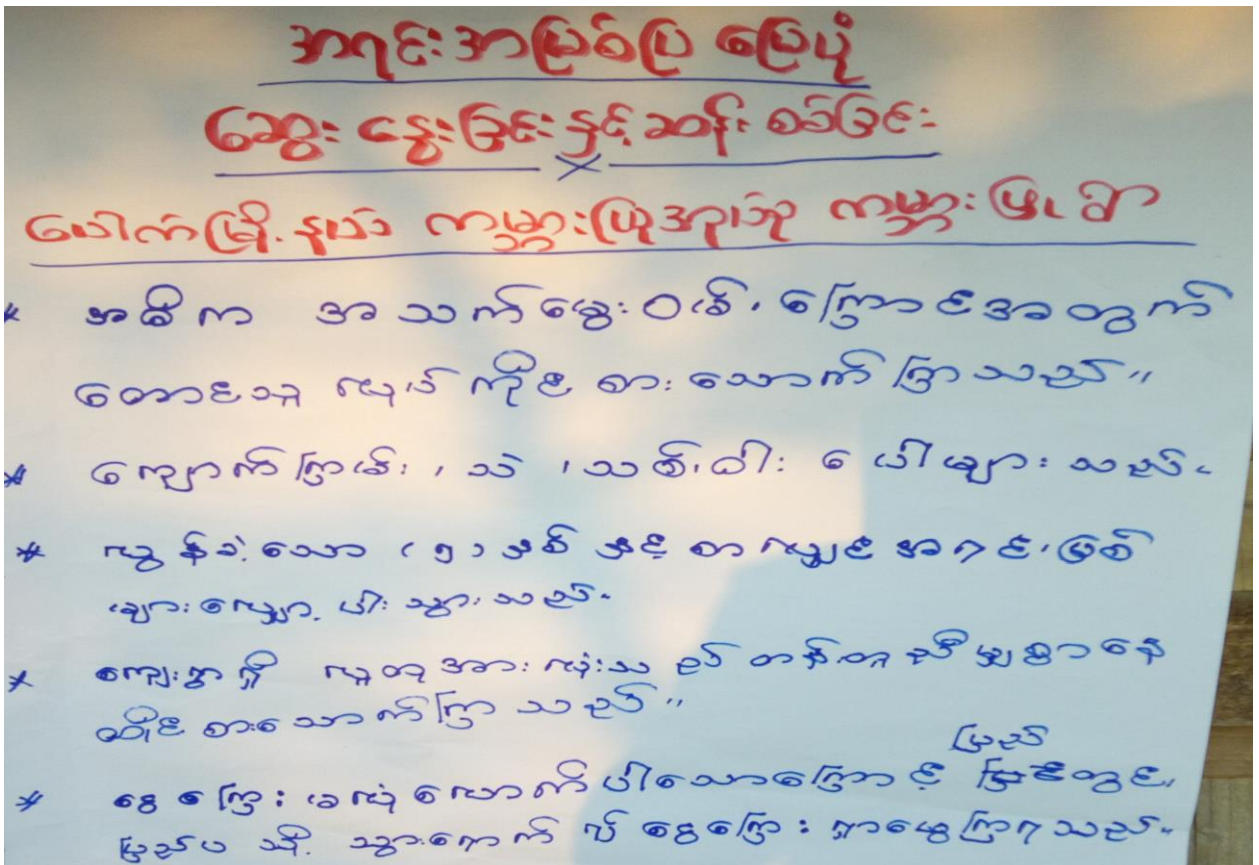 အရင်းအမြစ်ပြ မြေပုံ
ဆွေးနွေးခြင်းနှင့်ဆန်းစစ်ခြင်း
ပေါက်မြို့နယ် ကမ္မားဖြူအုပ်စု ကမ္မားဖြူရွာ
* အဓိက အသက်မွေးဝမ်းကြောင်းအတွက်
တောင်သူ လုပ်ကိုင် စားသောက်ကြသည်။
* ကျောက်ကြမ်း၊ သဲ၊ သစ်၊ ဝါး ပေါများသည်။
* လွန်ခဲ့သော (၅) နှစ် နှင့် စာလျှင် အရင်းမြစ်
များလျော့ပါးသွားသည်။
* ကျေးရွာရှိ လူထုအားလုံးသည် တန်းတူညီမျှစွာနေ
ထိုင် စားသောက်ကြသည်။
ပြည်
* ငွေကြေး မလုံလောက်ပါသောကြောင့် မြိုင်တွင်း
ပြည်ပ သို့ သွားရောက် ၍ ငွေကြေး ရှာဖွေကြရသည်။